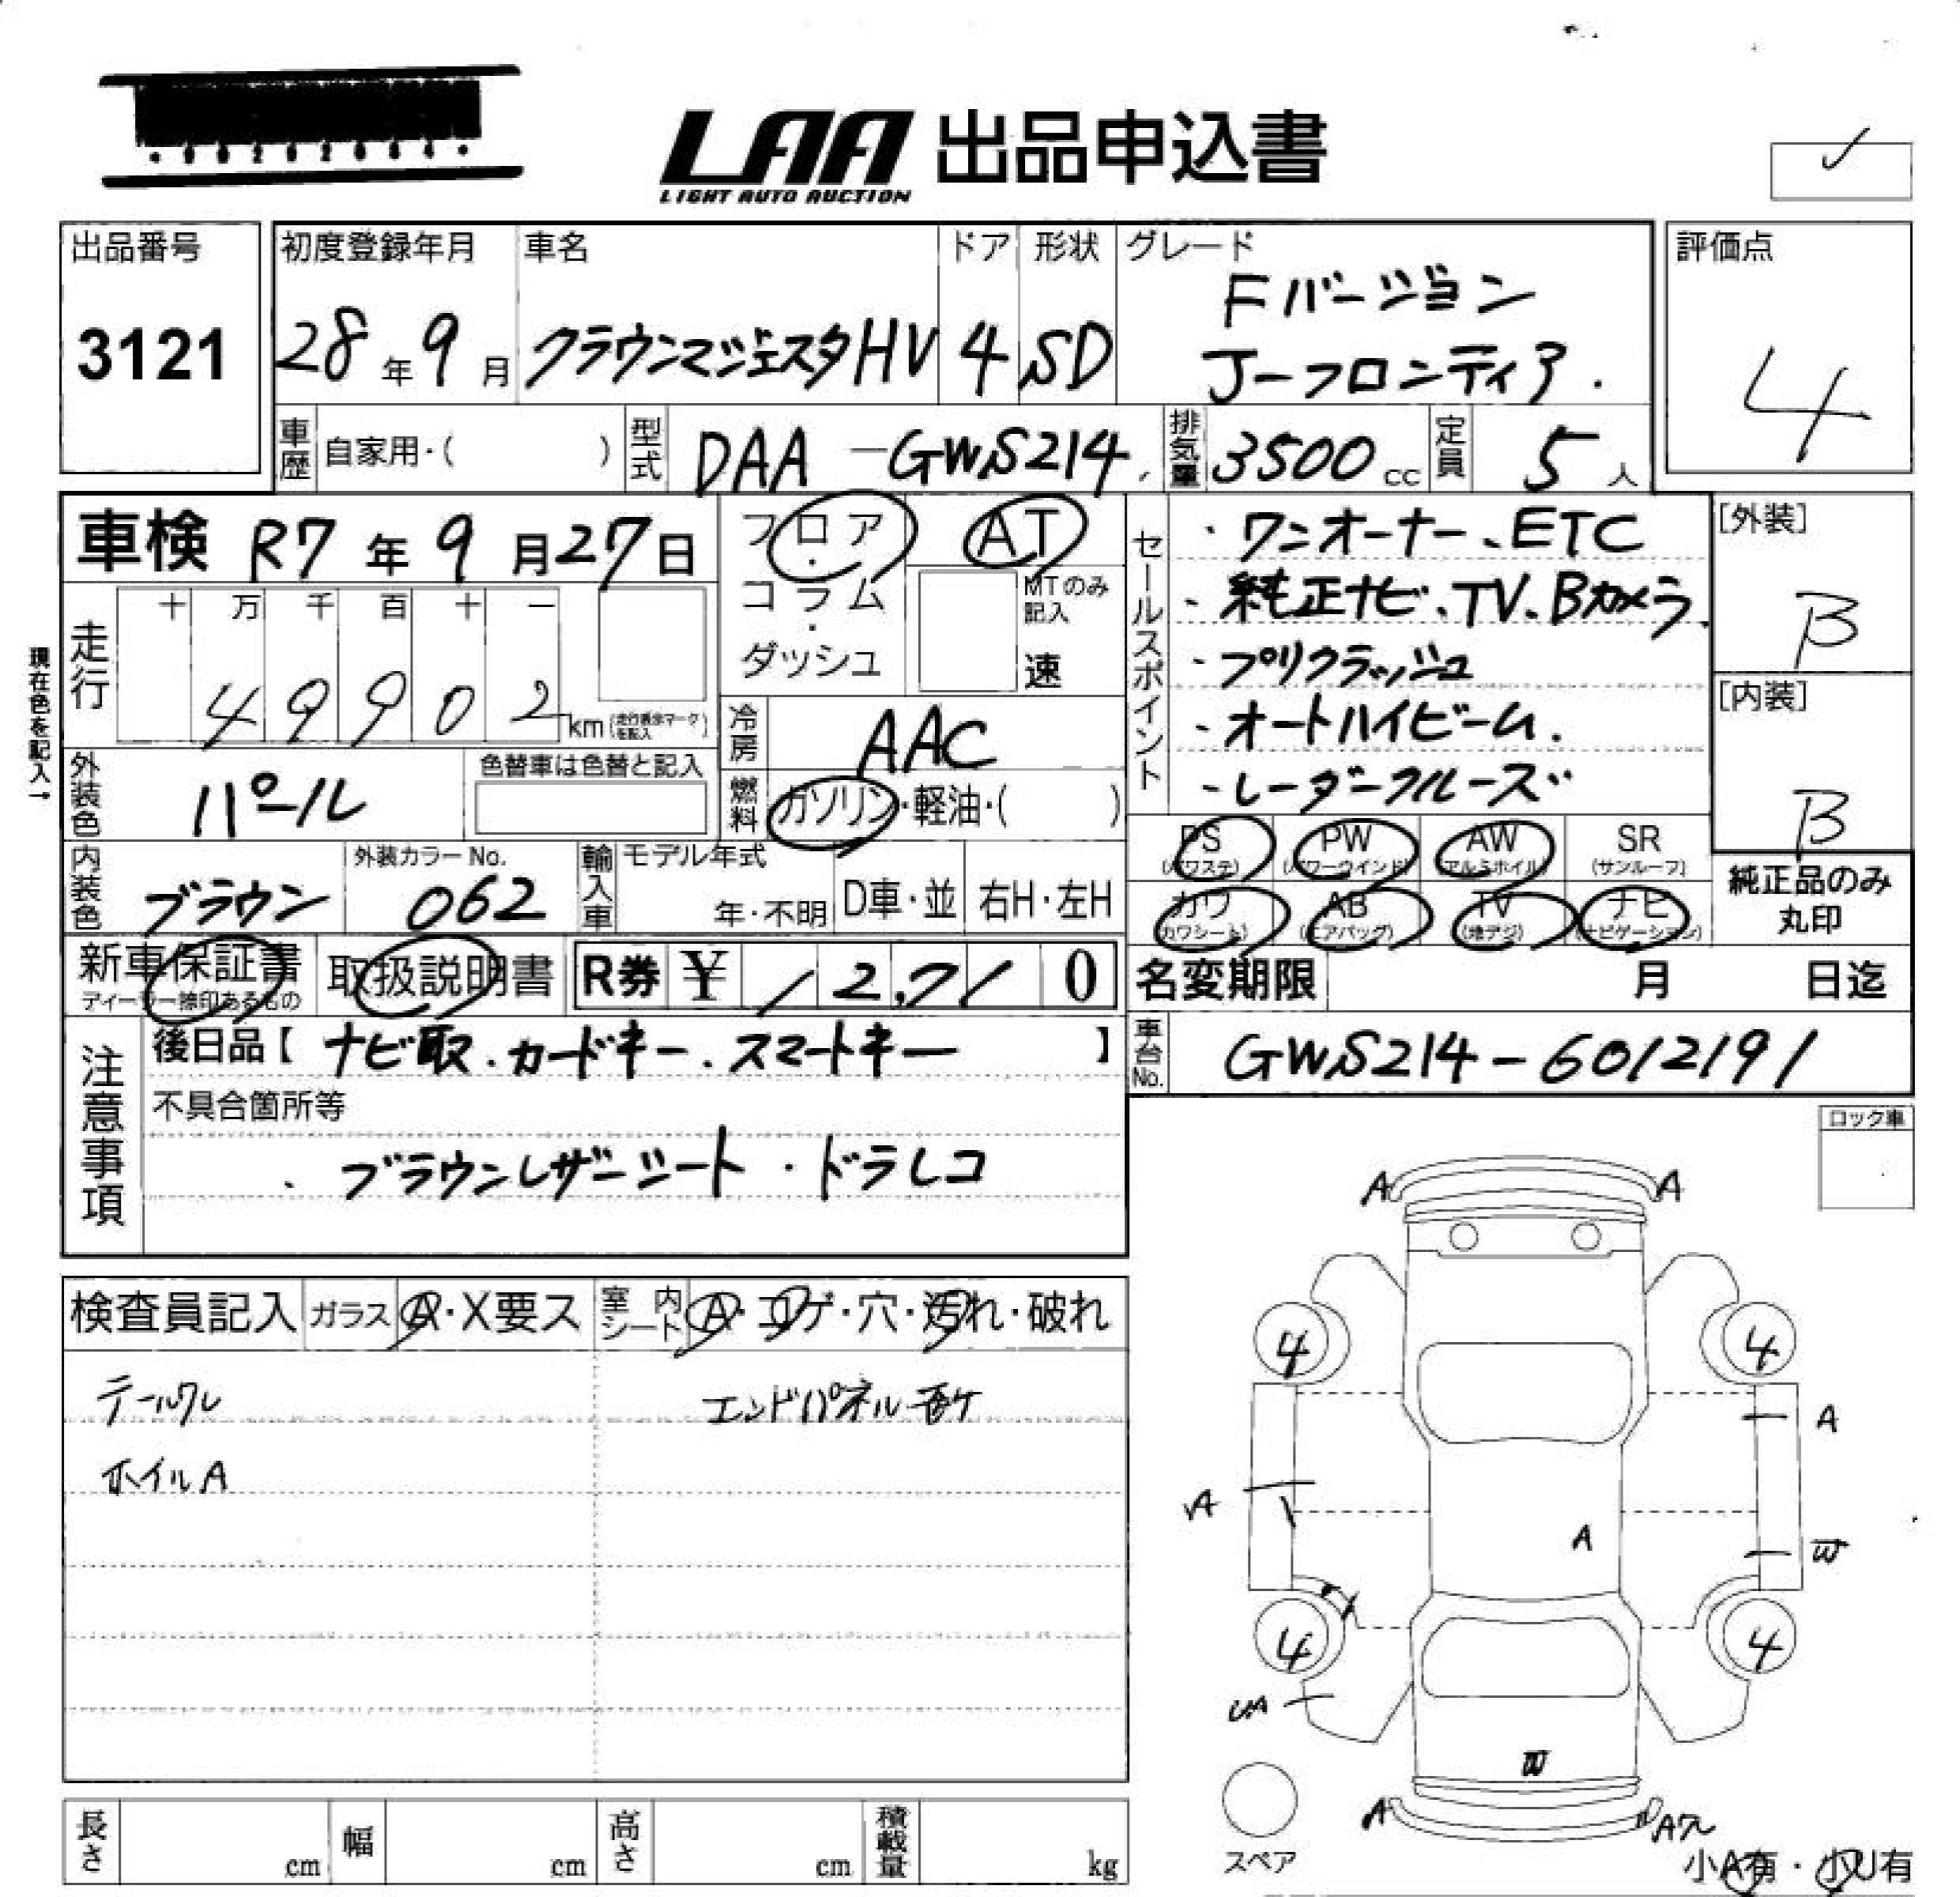 LAA 出品申込書
LIGHT AUTO AUCTION
出品番号
3121
初度登録年月
28年9月
車名
クラウンマジェスタHV
ドア
4
形状
SD
グレード
Fバージョン
J-フロンティア.
評価点
4
車歴 自家用・( )
型式 DAA-GWS214
排気量 3500cc
定員 5人
車検 R7年9月27日
フロア・コラム・ダッシュ
AT
MTのみ記入
速
走行
十 万 千 百 十 一
49902 km(走行表示マークを記入)
現在色を記入→
外装色 パール
色替車は色替と記入
冷房 AAC
燃料 ガソリン・軽油・( )
内装色 ブラウン
外装カラーNo. 062
輸入車 モデル年式 年・不明
D車・並 右H・左H
新車保証書
ディーラー捺印あるもの
取扱説明書
R券 ¥ 12,710
セールスポイント
・ワンオーナー、ETC
・純正ナビ、TV、Bカメラ
・プリクラッシュ
・オートハイビーム.
・レーダークルーズ
[外装]
B
[内装]
B
PS(パワステ) PW(パワーウインド) AW(アルミホイル) SR(サンルーフ)
カワ(カワシート) AB(エアバッグ) TV(地デジ) ナビ(ナビゲーション)
純正品のみ丸印
名変期限 月 日迄
車台No. GWS214-6012191
注意事項
後日品【ナビ取.カードキー.スマートキー】
不具合箇所等
・ブラウンレザーシート・ドラレコ
ロック車
検査員記入 ガラス A・X要ス 室内シート A・コゲ・穴・汚れ・破れ
テールワレ
エンドパネル
ホイルA
A A
4 4
A
A
A
W
4 4
UA
W
A Aワレ
スペア
小A有・小U有
長さ cm 幅 cm 高さ cm 積載量 kg